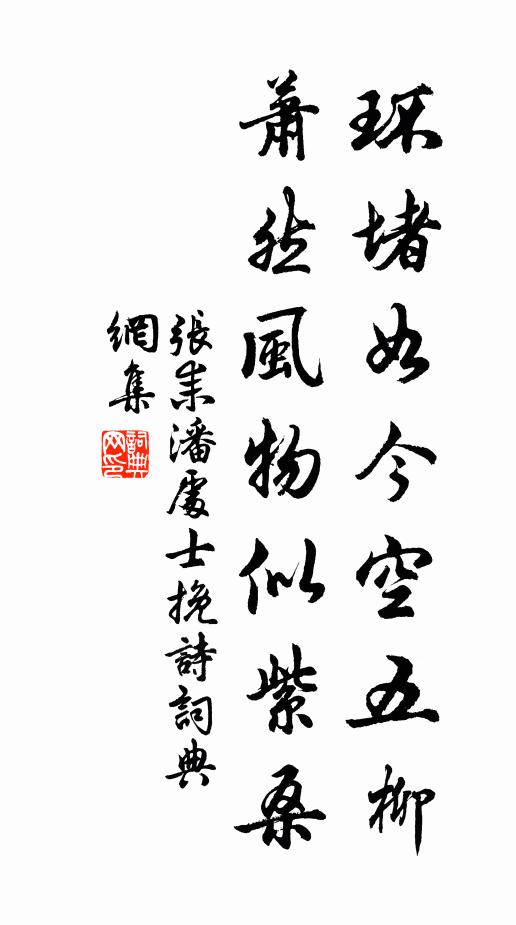 環堵如今空五柳
蕭然風物似紫桑
張耒潘處士挽詩詞典
網集
詞典網印